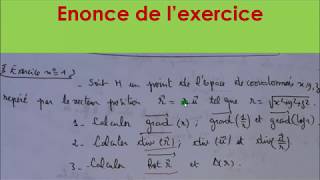 Enonce de l'exercice
Exercice n°=1
Soit M un point de l'espace de coordonnées x, y, z
repéré par le vecteur position r⃗ = r u⃗ tel que r = √x²+y²+z².
1 - Calculer grad (r) ; grad (1/r) et grad (log r)
2 - Calculer div (r⃗) ; div (u⃗) et div
3 - Calculer Rot r⃗ et Δ(r)